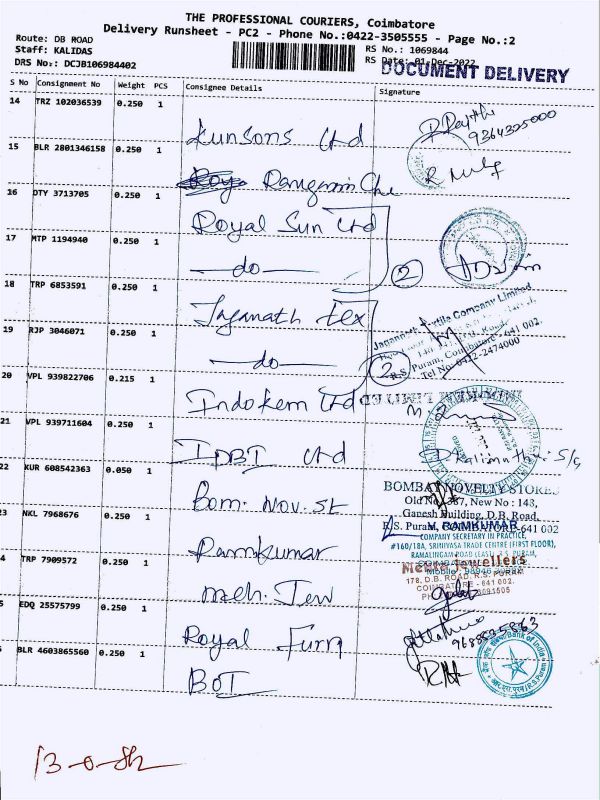 THE PROFESSIONAL COURIERS, Coimbatore
Delivery Runsheet - PC2 - Phone No.:0422-3505555 - Page No.:2
Route: DB ROAD
Staff: KALIDAS
DRS No.: DCJB106984402
RS No.: 1069844
RS Date: 01-Dec-2022
DOCUMENT DELIVERY
S No Consignment No Weight PCS Consignee Details Signature
14 TRZ 102036539 0.250 1
Kunsons Ltd
9364325000
15 BLR 2801346158 0.250 1
16 DTY 3713705 0.250 1
Royal Sun Ltd
17 MTP 1194940 0.250 1
do
2
18 TRP 6853591 0.250 1
Jaganath Tex
Jagannath Textile Company Limited
Puram, Coimbatore - 641 002.
Tel No. 0422-2474000
19 RJP 3046071 0.250 1
do
2
20 VPL 939822706 0.215 1
Indokem Ltd
21 VPL 939711604 0.250 1
IDBI Ltd
22 KUR 608542363 0.050 1
Bom. Nov. St
BOMBAY NOVELTY STORES
Old No. 387, New No : 143,
Ganesh Building, D.B. Road,
R.S. Puram, COIMBATORE-641 002
23 NKL 7968676 0.250 1
Ramkumar
RAMKUMAR
COMPANY SECRETARY IN PRACTICE,
#160/18A, SRINIVASA TRADE CENTRE (FIRST FLOOR),
RAMALINGAM ROAD (EAST), R.S. PURAM,
4 TRP 7909572 0.250 1
Meh. Jew
Mehta Jewellers
178, D.B. ROAD, R.S. PURAM
COIMBATORE - 641 002.
5 EDQ 25575799 0.250 1
Royal Furn
BLR 4603865560 0.250 1
BOI
Bank of India
R.S. Puram